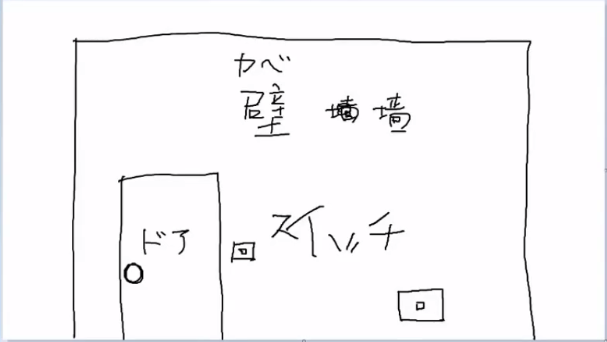 カベ
壁 墙 墙
ドア
スイッチ